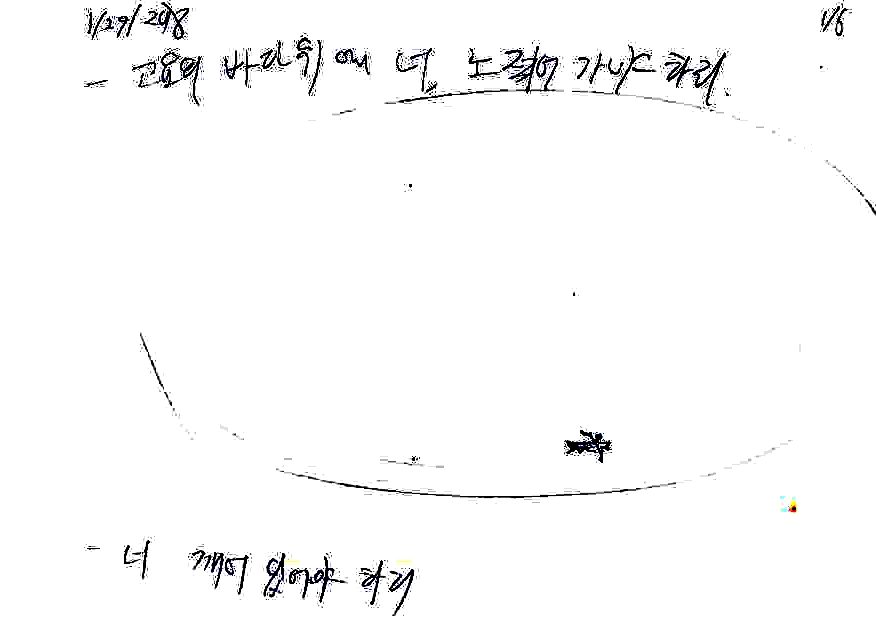 1/27/2018
1/6
- 고요의 바다 위에 너 노 적어 가야 하리.
- 너 깨어 있어야 하리